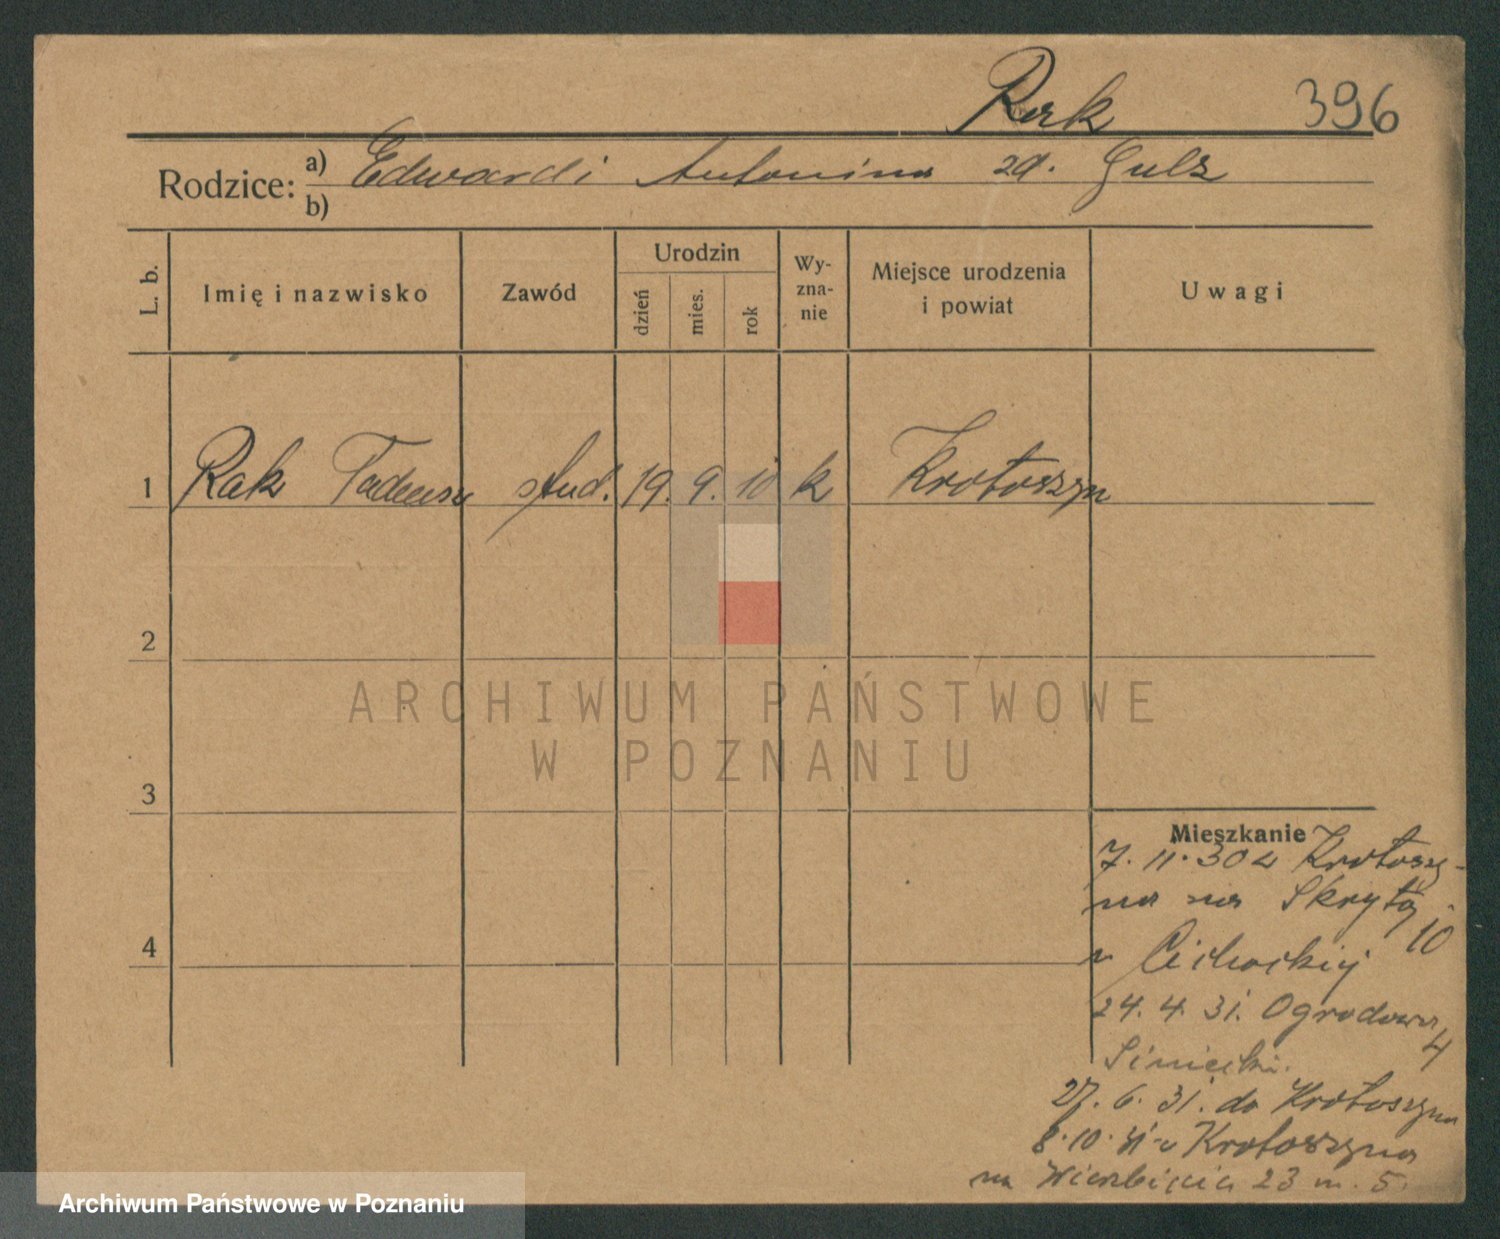 Rak 396
Rodzice: a) Edward i Antonina zd. Gulz
b)
L. b. Imię i nazwisko Zawód Urodzin dzień mies. rok Wy-zna-nie Miejsce urodzenia i powiat Uwagi
1 Rak Tadeusz stud. 19. 9. 10 k Krotoszyn
2
ARCHIWUM PAŃSTWOWE
W POZNANIU
3
Mieszkanie
7. 11. 30 z Krotoszy-
na na Skrytą 10
u Cichockiej
4
24. 4. 31. Ogrodowa 4
27. 6. 31. do Krotoszyna
8. 10. 31 z Krotoszyna
na Wierzbięcice 23 m. 5.
Archiwum Państwowe w Poznaniu